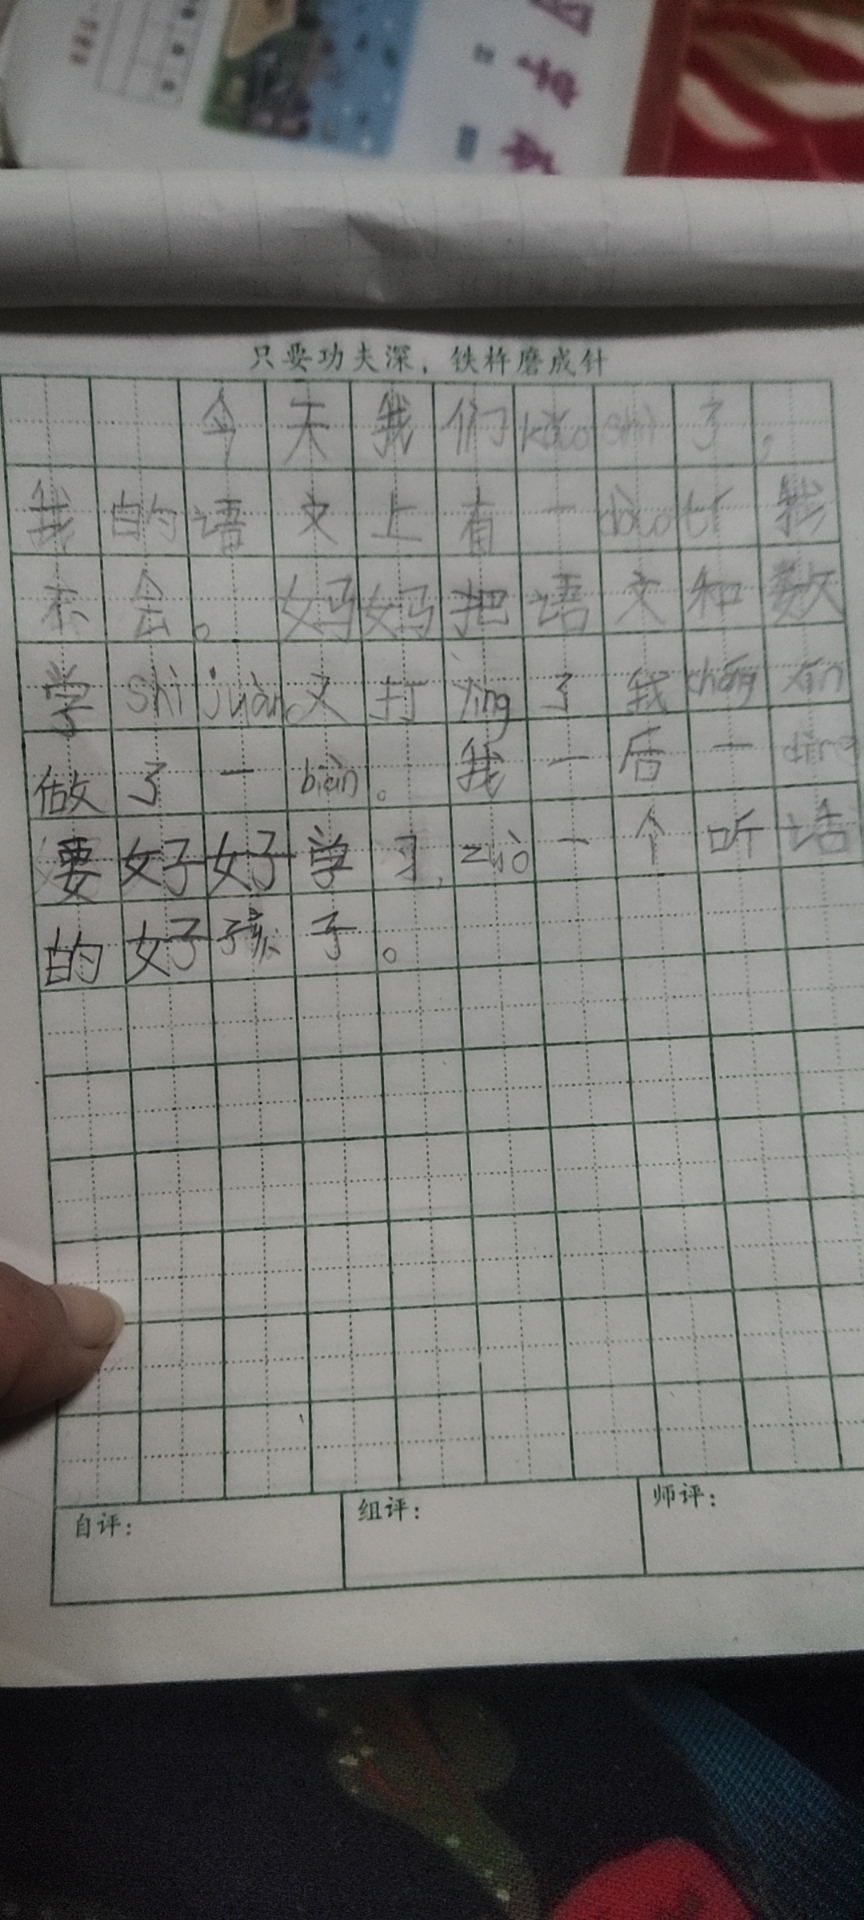 只要功夫深，铁杵磨成针
今天我们kǎoshì了，
我的语文上有一dàotí我
不会。妈妈把语文和数
学shìjuàn又打yìng了我chóngxīn
做了一biàn。我一后一dìng
要好好学习，zuò一个听话
的好孩子。
自评：
组评：
师评：